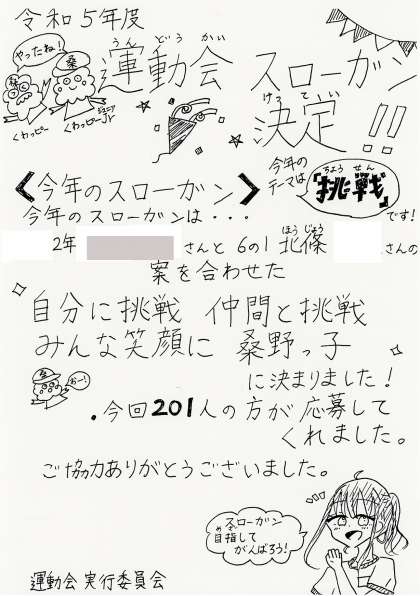 令和5年度
やったね！
運動会 スローガン
うんどうかい
決定!!
けってい
くわっピー
くわっピーJr
ジュニア
今年の
テーマは
ちょうせん
『挑戦』
です！
《今年のスローガン》
今年のスローガンは・・・
2年 さんと 6の1 北條 さんの
ほうじょう
案を合わせた
自分に挑戦 仲間と挑戦
みんな笑顔に 桑野っ子
おー！
に決まりました！
・今回201人の方が応募して
くれました。
ご協力ありがとうございました。
スローガン
目指して
めざ
がんばろう！
運動会 実行委員会